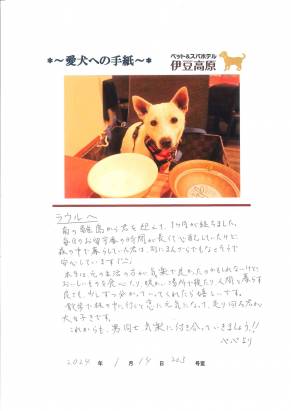 ＊～愛犬への手紙～＊
ペット&スパホテル
伊豆高原
ラウルへ
南の離島から君を迎えて、1ヶ月が経ちました。
毎日のお留守番の時間が長くて心配していたけど
森の中で暮らしていた君は、
安心しています
本当は、元の生活の方が気楽で良かったのかもしれないけど
おいしいものを食べたり、暖かい場所で寝たり、人間と暮らす
良さも、少しずつ分かっていってくれたら嬉しいです。
散歩で森の中に行くと急に元気になって、走り回る君が
大好きです。
これからも、男同士気楽に付き合っていきましょう!!
パパより
2024 年 1 月 14 日 203 号室